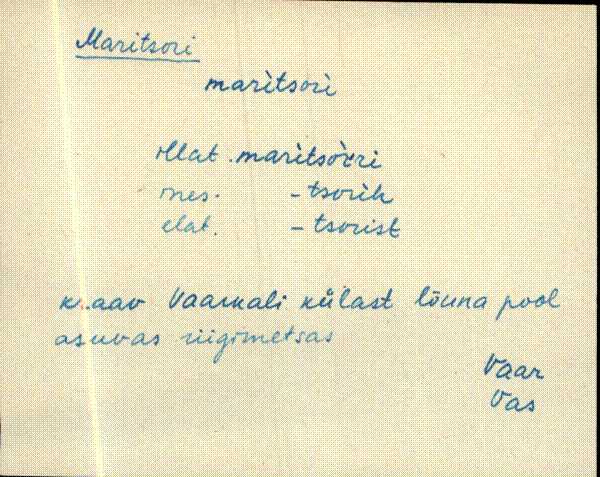 Maritsori
maritsori
illat. maritsorri
ines. - tsorih
elat. - tsorist
kraav Vaarkali külast lõuna pool
asuvas riigimetsas
Vaar
Vas